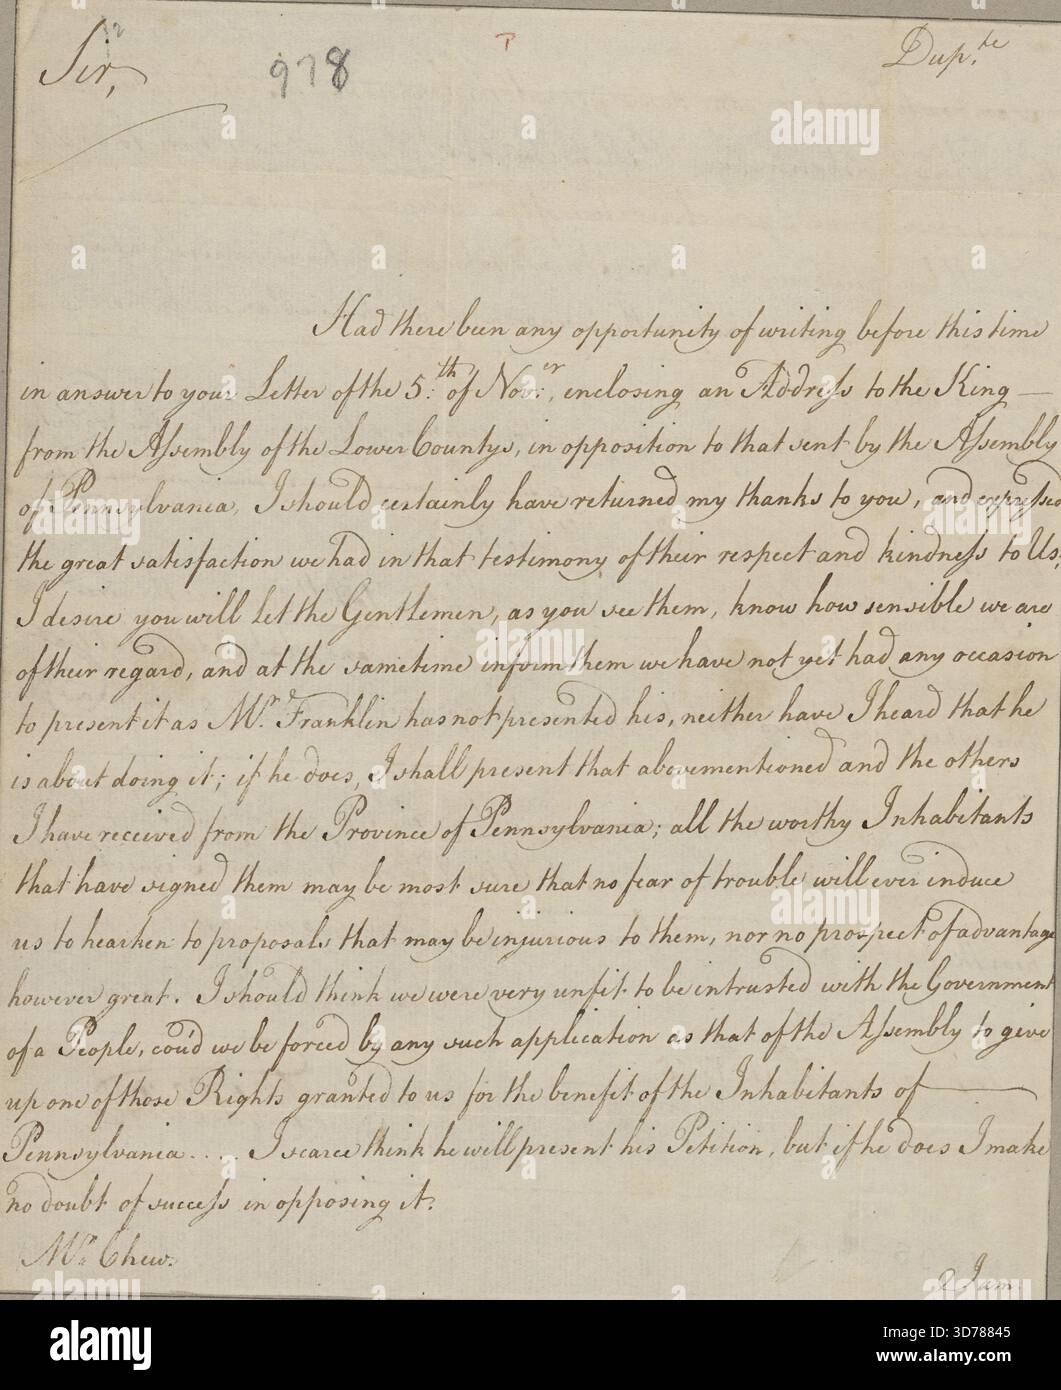 Sir,
978
Dup.te
Had there been any opportunity of writing before this time
in answer to your Letter of the 5:th of Nov:er, enclosing an Address to the King —
from the Assembly of the Lower Countys, in opposition to that sent by the Assembly
of Pennsylvania, I should certainly have returned my thanks to you, and expressed
the great satisfaction we had in that testimony of their respect and kindness to Us,
I desire you will let the Gentlemen, as you see them, know how sensible we are
of their regard, and at the same time inform them we have not yet had any occasion
to present it as Mr. Franklin has not presented his, neither have I heard that he
is about doing it; if he does, I shall present that abovementioned and the others
I have received from the Province of Pennsylvania; all the worthy Inhabitants
that have signed them may be most sure that no fear of trouble will ever induce
us to hearken to proposals that may be injurious to them, nor no prospect of advantage
however great. I should think we were very unfit to be intrusted with the Government
of a People, cou'd we be forced by any such application as that of the Assembly to give
up one of those Rights granted to us for the benefit of the Inhabitants of —
Pennsylvania .... I scarce think he will present his Petition, but if he does I make
no doubt of success in opposing it.
Mr. Chew.
I am
alamy
Image ID: 3D78845
www.alamy.com